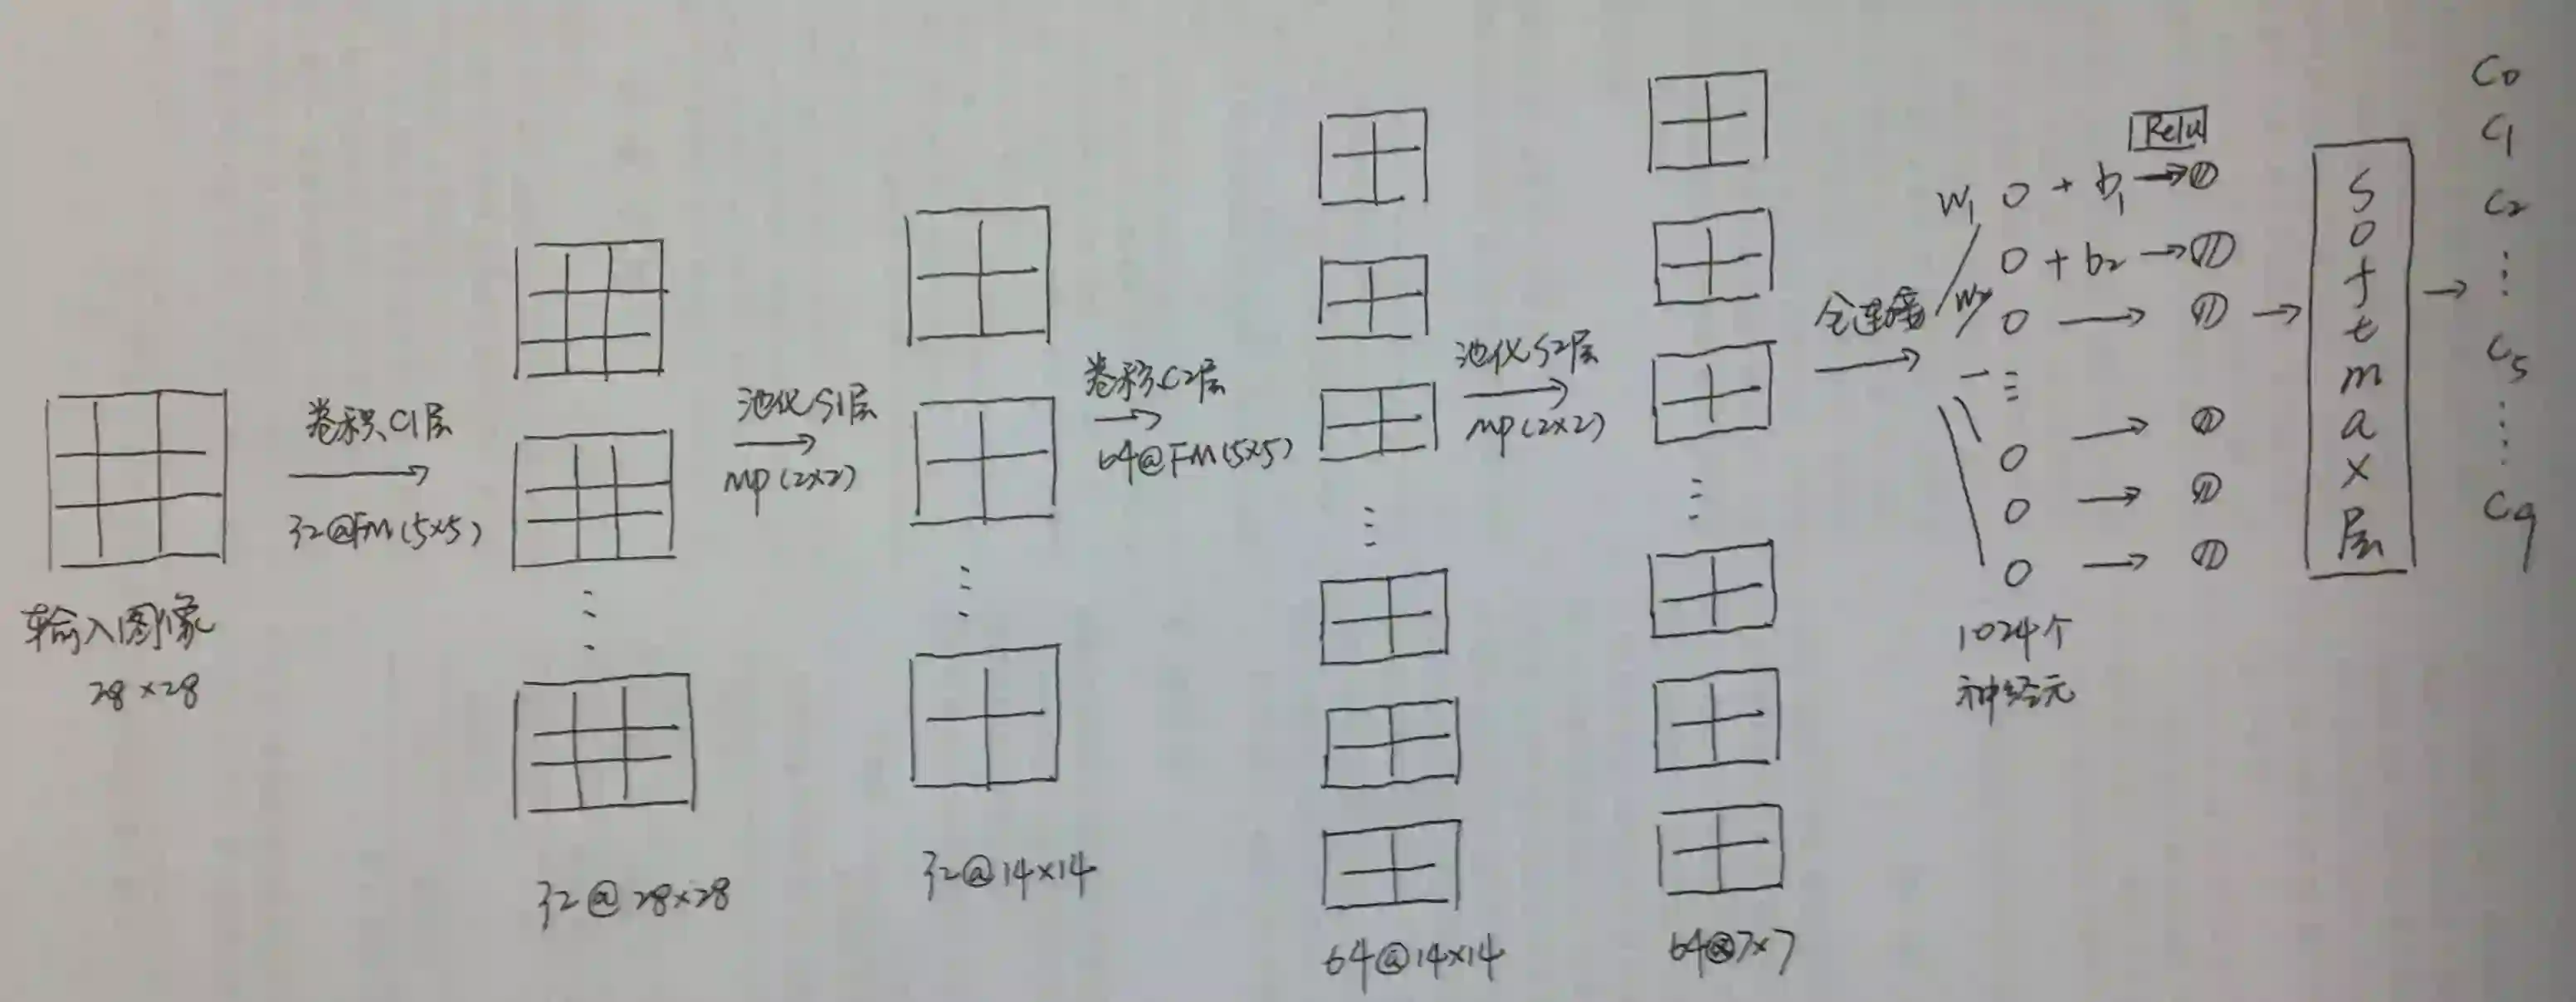 输入图像
28×28
卷积C1层
32@FM(5×5)
32@28×28
池化S1层
MP(2×2)
32@14×14
卷积C2层
64@FM(5×5)
64@14×14
池化S2层
MP(2×2)
64@7×7
全连接
Relu
W1 O + b1 →
W2 O + b2 →
1024个
神经元
Softmax层
C0
C1
C2
⋮
C5
⋮
C9